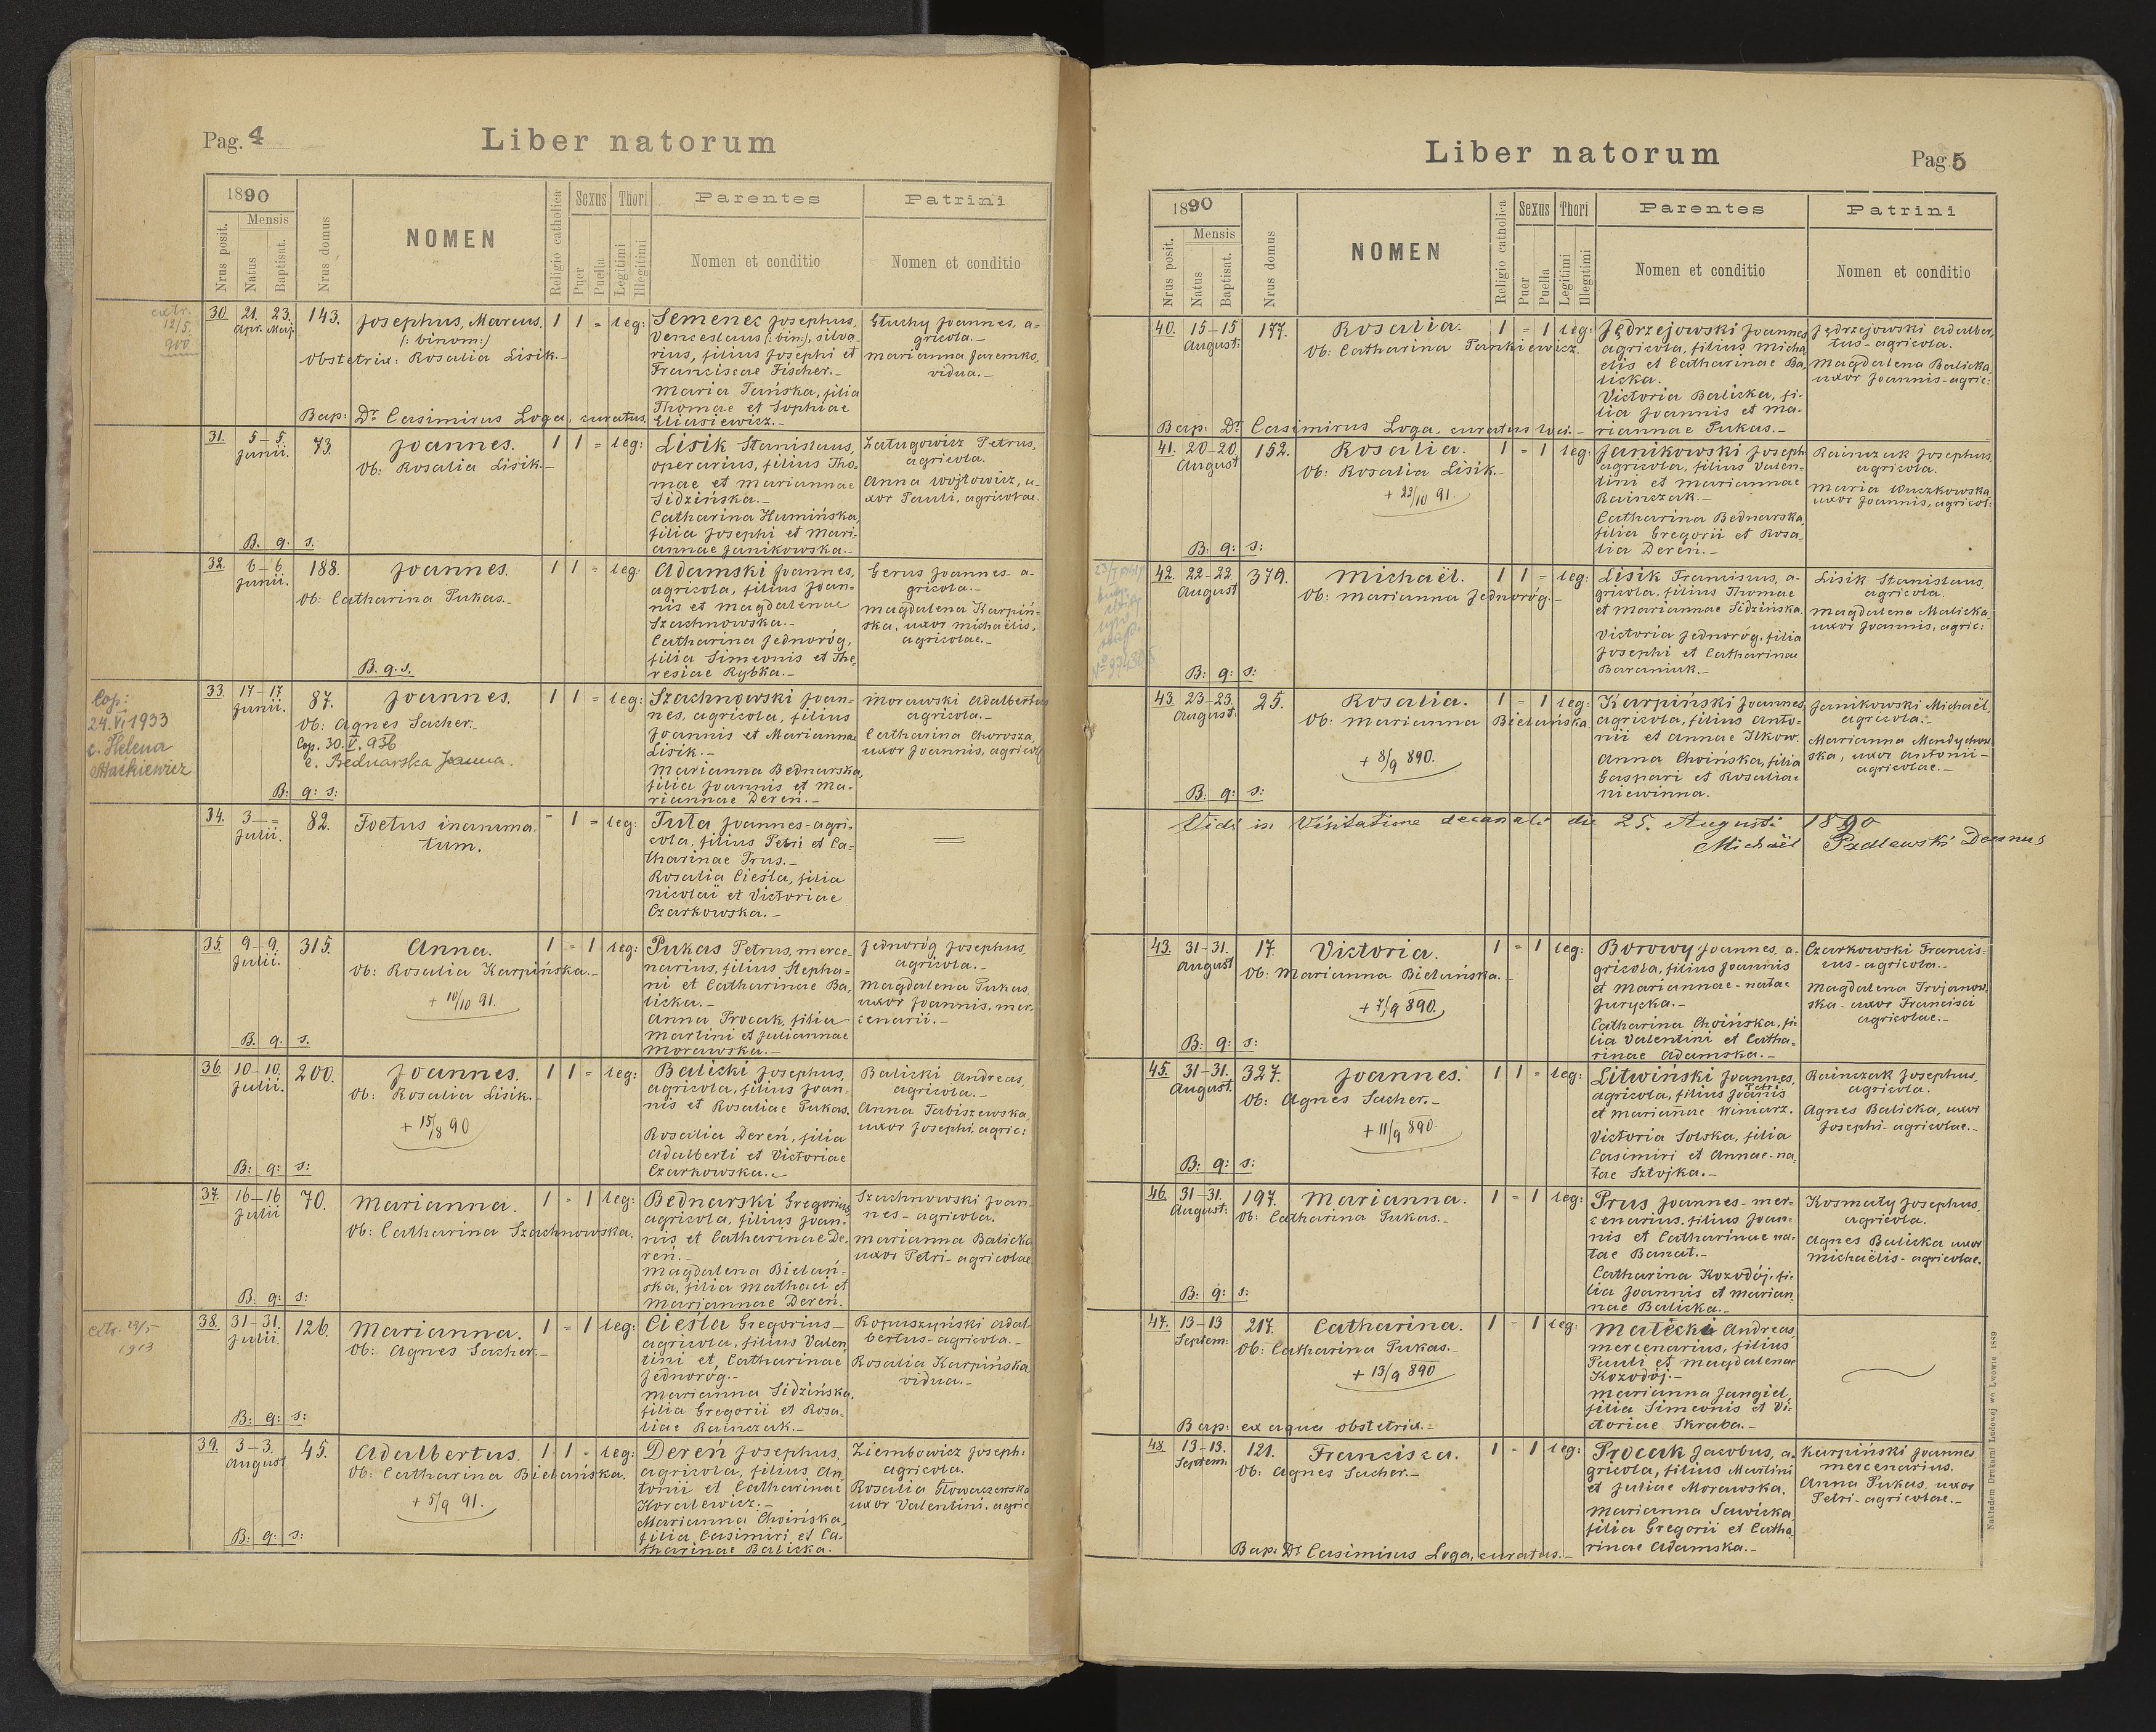 Pag. 4
Liber natorum
1890
Mensis
Nrus posit.
Natus
Baptisat.
Nrus domus
NOMEN
Religio catholica
Sexus
Puer
Puella
Thori
Legitimi
Illegitimi
Parentes
Nomen et conditio
Patrini
Nomen et conditio
extr.
12/5
900
30. 21. 23. 143. Josephus, Marcus. 1 1 = leg:
Apr. Maj.
(: binom:)
Obstetrix: Rosalia Lisik.-
Semenec Josephus,
Venceslaus (: bin:), silva-
rius, filius Josephi et
Franciscae Fischer.-
Maria Tańska, filia
Thomae et Sophiae
Eliasiewicz.-
Głuchy Joannes, a-
gricola.-
Marianna Jaremko,
vidua.-
Bap: Dr Casimirus Loga, curatus.
31. 5-5. 73. Joannes. 1 1 = leg:
Junii.
Ob: Rosalia Lisik.-
Lisik Stanislaus,
operarius, filius Tho-
mae et Mariannae
Sidzińska.-
Catharina Humińska,
filia Josephi et Mari-
annae Janikowska.-
Załugowicz Petrus,
agricola.
Anna Wojtowicz, u-
xor Pauli, agricolae.
B. q. s.
32. 6-6 188. Joannes. 1 1 = leg:
Junii.
Ob: Catharina Pukas.-
Adamski Joannes,
agricola, filius Joan-
nis et Magdalenae
Szachnowska.-
Catharina Jednoróg,
filia Simeonis et The-
resiae Rybka.-
Gerus Joannes- a-
gricola.-
Magdalena Karpiń-
ska, uxor Michaëlis,
agricolae.-
B. q. s.
Cop:
24.VI 1933
c. Helena
Maćkiewicz
33. 17-17. 87. Joannes. 1 1 = leg:
Junii.
Ob: Agnes Sacher.-
Cop. 30.V.936
c. Bednarska Joanna.
Szachnowski Joan-
nes, agricola, filius
Joannis et Mariannae
Lisik.-
Marianna Bednarska,
filia Joannis et Ma-
riannae Dereń.-
Morawski Adalbertus
agricola.-
Catharina Chorosza,
uxor Joannis, agricol
B: q: s:
34. 3-= 82. Foetus inanima- - 1 = leg:
Julii.
tum.
Tuta Joannes-agri-
cola, filius Petri et Ca-
tharinae Prus.-
Rosalia Cieśla, filia
Nicolai et Victoriae
Czarkowska.-
35. 9-9. 315. Anna. 1 = 1 leg:
Julii.
Ob: Rosalia Karpińska.-
+ 10/10 91.
Pukas Petrus, merce-
narius, filius Stepha-
ni et Catharinae Ba-
licka.-
Anna Procak, filia
Martini et Juliannae
Morawska.-
Jednoróg Josephus,
agricola.-
Magdalena Pukas
uxor Joannis, mer-
cenarii.-
B. q. s.
36. 10-10. 200. Joannes. 1 1 = leg:
Julii.
Ob: Rosalia Lisik.-
+ 15/8 90
Balicki Josephus,
agricola, filius Joan-
nis et Rosaliae Pukas.
Rosalia Dereń, filia
Adalberti et Victoriae
Czarkowska.-
Balicki Andreas,
agricola.-
Anna Tabiszewska
uxor Josephi, agric:
B: q: s:
37. 16-16 70. Marianna. 1 = 1 leg:
Julii
Ob: Catharina Szachnowska.
Bednarski Gregorius,
agricola, filius Joan-
nis et Catharinae De-
reń.-
Magdalena Bielań-
ska, filia Mathaei et
Mariannae Dereń.
Szachnowski Joan-
nes- agricola.
Marianna Balicka
uxor Petri- agricolae
B: q: s:
Extr. 29/5
1913
38. 31-31. 126. Marianna. 1 = 1 leg:
Julii
Ob: Agnes Sacher.-
Cieśla Gregorius-
agricola, filius Valen-
tini et Catharinae
Jednoróg.-
Marianna Sidzińska,
filia Gregorii et Rosa-
liae Rainczak.-
Kopuszyński Adal-
bertus-agricola.-
Rosalia Karpińska
vidua.-
B: q: s:
39. 3-3. 45. Adalbertus. 1 1 = leg:
August
Ob: Catharina Bielańska.
+ 5/9 91.
Dereń Josephus,
agricola, filius An-
tonii et Catharinae
Koralewicz.-
Marianna Choińska,
filia Casimiri et Ca-
tharinae Balicka.
Ziembowicz Joseph:
agricola.
Rosalia Głowaczewska
uxor Valentini, agric
B: q: s:
Liber natorum
Pag 5
1890
Mensis
Nrus posit.
Natus
Baptisat.
Nrus domus
NOMEN
Religio catholica
Sexus
Puer
Puella
Thori
Legitimi
Illegitimi
Parentes
Nomen et conditio
Patrini
Nomen et conditio
40. 15-15 177. Rosalia. 1 = 1 leg:
August:
Ob: Catharina Pankiewicz.
Jędrzejowski Joannes
agricola, filius Micha
elis et Catharinae Ba
licka.
Victoria Balicka, fi-
lia Joannis et Ma-
riannae Pukas.-
Jędrzejowski Adalber,
tus-agricola.
Magdalena Balicka,
uxor Joannis-agric:
Bap: Dr Casimirus Loga, curatus loci.-
41. 20-20. 152. Rosalia. 1 = 1 leg:
August
Ob: Rosalia Lisik-
+ 22/10 91.
Janikowski Joseph
agricola, filius Valen-
tini et Mariannae
Rainczak.-
Catharina Bednarska,
filia Gregorii et Rosa
lia Dereń.-
Rainczak Josephus,
agricola.
Maria Waczkowska
uxor Joannis, agricol:
B: q: s:
42. 22-22. 379. Michaël. 1 1 = leg:
August
Ob: Marianna Jednoróg.-
Lisik Franciscus, a-
gricola, filius Thomae
et Mariannae Sidzińska.
Victoria Jednoróg, filia
Josephi et Catharinae
Baraniuk.-
Lisik Stanislaus,
agricola.
Magdalena Malicka,
uxor Joannis, agric:
B: q: s:
43. 23-23. 25. Rosalia. 1 = 1 leg:
August:
Ob: Marianna Bielańska.
+ 8/9 890.
Karpiński Joannes,
agricola, filius Anto-
nii et Annae Ilkow.
Anna Choińska, filia
Gaspari et Rosaliae
Niewinna.
Janikowski Michaël,
agricola.-
Marianna Mendychow-
ska, uxor Antonii-
agricolae.-
B: q: s:
Vidi in Visitatione decanali die 25. Augusti 1890
Michaël Padlewski Decanus
43. 31-31. 17. Victoria. 1 = 1 leg:
August
Ob: Marianna Bielańska.-
+ 7/9 890.
Borowy Joannes, a-
gricola, filius Joannis
et Mariannae-natae
Jurycka.-
Catharina Choińska, fi
lia Valentini et Catha-
rinae Adamska.-
Czarkowski Francis-
cus-agricola.-
Magdalena Trojanow-
ska-uxor Francisci
agricolae.-
B: q: s:
45. 31-31. 327. Joannes. 1 1 = leg:
August.
Ob: Agnes Sacher.-
+ 11/9 890.
Litwiński Joannes,
Petri
agricola, filius Joanis
et Marianae Winiarz.
Victoria Solska, filia
Casimiri et Annae-na-
tae Sztojka.-
Rainczak Josephus,
agricola.
Agnes Balicka, uxor
Josephi-agricolae.-
B: q: s:
46. 31-31. 197. Marianna. 1 = 1 leg:
August:
Ob: Catharina Pukas.-
Prus Joannes-mer-
cenarius, filius Joan-
nis et Catharinae na-
tae Banat.-
Catharina Kozodój, fi-
lia Joannis et Marian-
nae Balicka.-
Kosmaty Josephus,
agricola.
Agnes Balicka uxor
Michaëlis-agricolae.
B: q: s:
47. 13-13 217. Catharina. 1 = 1 leg:
Septem:
Ob: Catharina Pukas.-
+ 13/9 890
Andreas,
mercenarius, filius
Pauli et Magdalenae
Kozodój.-
Marianna Jangiel,
filia Simeonis et Vi-
ctoriae Skraba.-
Bap: ex aqua obstetrix.-
48. 13-13. 121. Francisca. 1 = 1 leg:
Septem.
Ob: Agnes Sacher.-
Procak Jacobus, a-
gricola, filius Martini
et Juliae Morawska.
Marianna Sawicka
filia Gregorii et Catha
rinae Adamska.-
Karpiński Joannes
mercenarius.
Anna Pukas, uxor
Petri-agricolae.-
Bap. Dr Casimirus Loga, curatus.-
Nakładem Drukarni Ludowej we Lwowie 1889